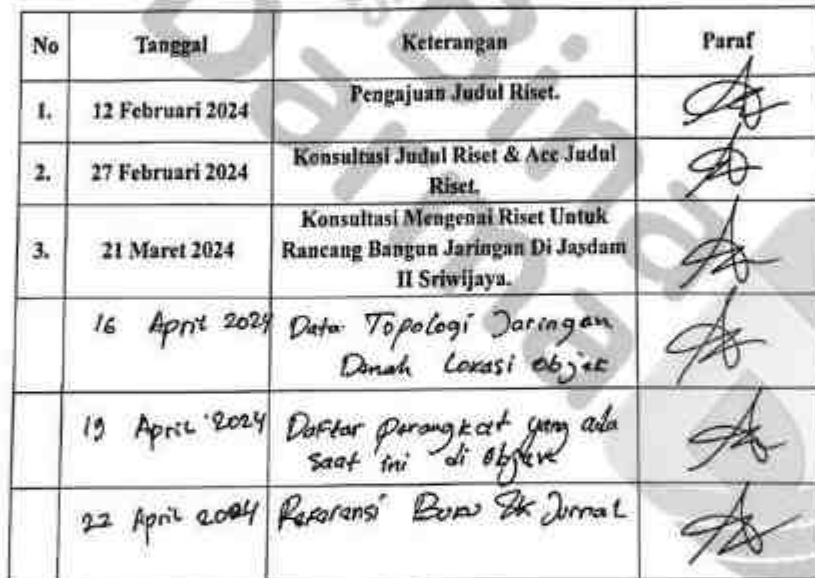 No Tanggal Keterangan Paraf
1. 12 Februari 2024 Pengajuan Judul Riset.
2. 27 Februari 2024 Konsultasi Judul Riset & Acc Judul
Riset.
3. 21 Maret 2024 Konsultasi Mengenai Riset Untuk
Rancang Bangun Jaringan Di Jasdam
II Sriwijaya.
16 April 2024 Data Topologi Jaringan
Denah Lokasi objek
19 April 2024 Daftar perangkat yang ada
saat ini di Objek
22 April 2024 Referensi Buku Jurnal
Bina
Darma